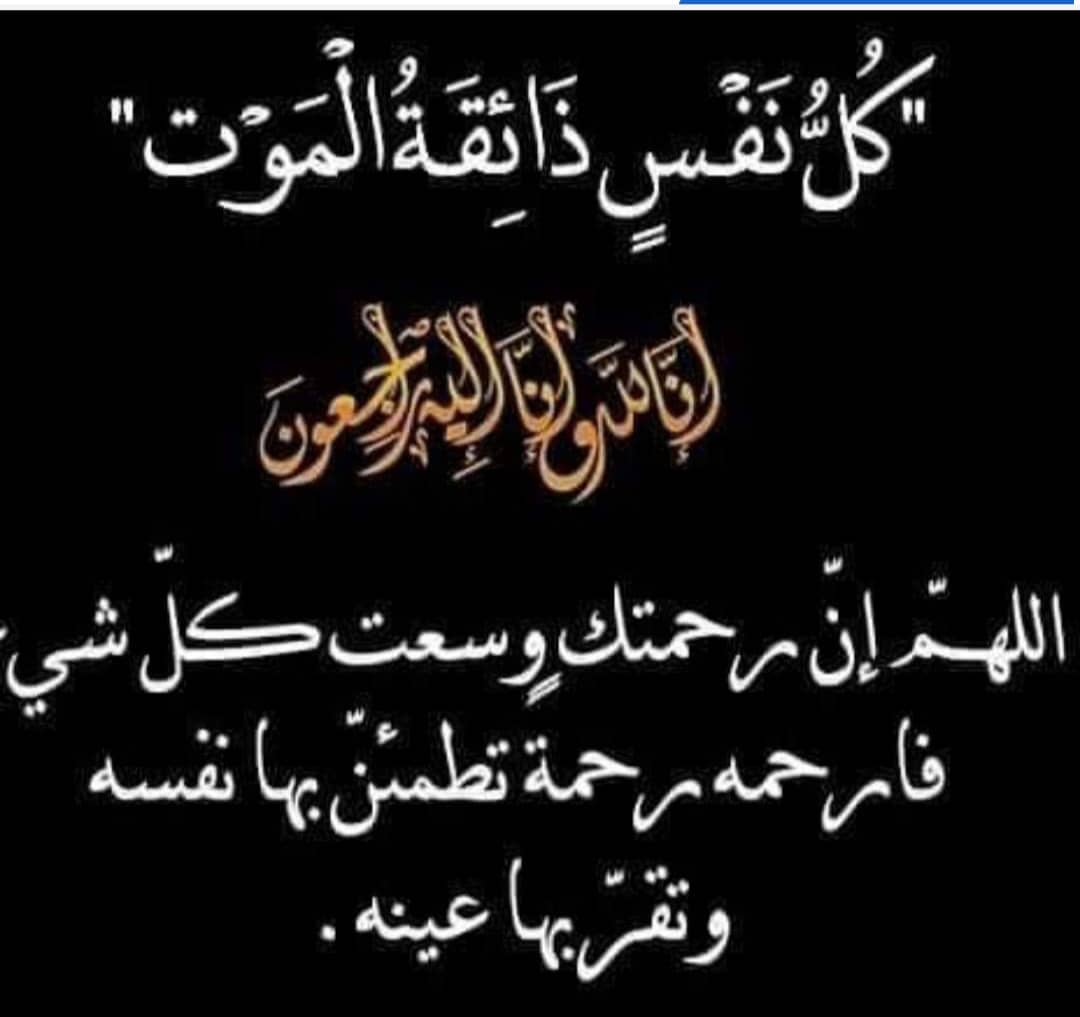 "كُلُّ نَفْسٍ ذَائِقَةُ الْمَوْت"
إِنَّا لِلَّٰهِ وَإِنَّا إِلَيْهِ رَاجِعُونَ
اللهمّ إنّ رحمتك وٍسعت كلّ شيء
فارحمه رحمة تطمئنّ بها نفسه
وتقرّ بها عينه .